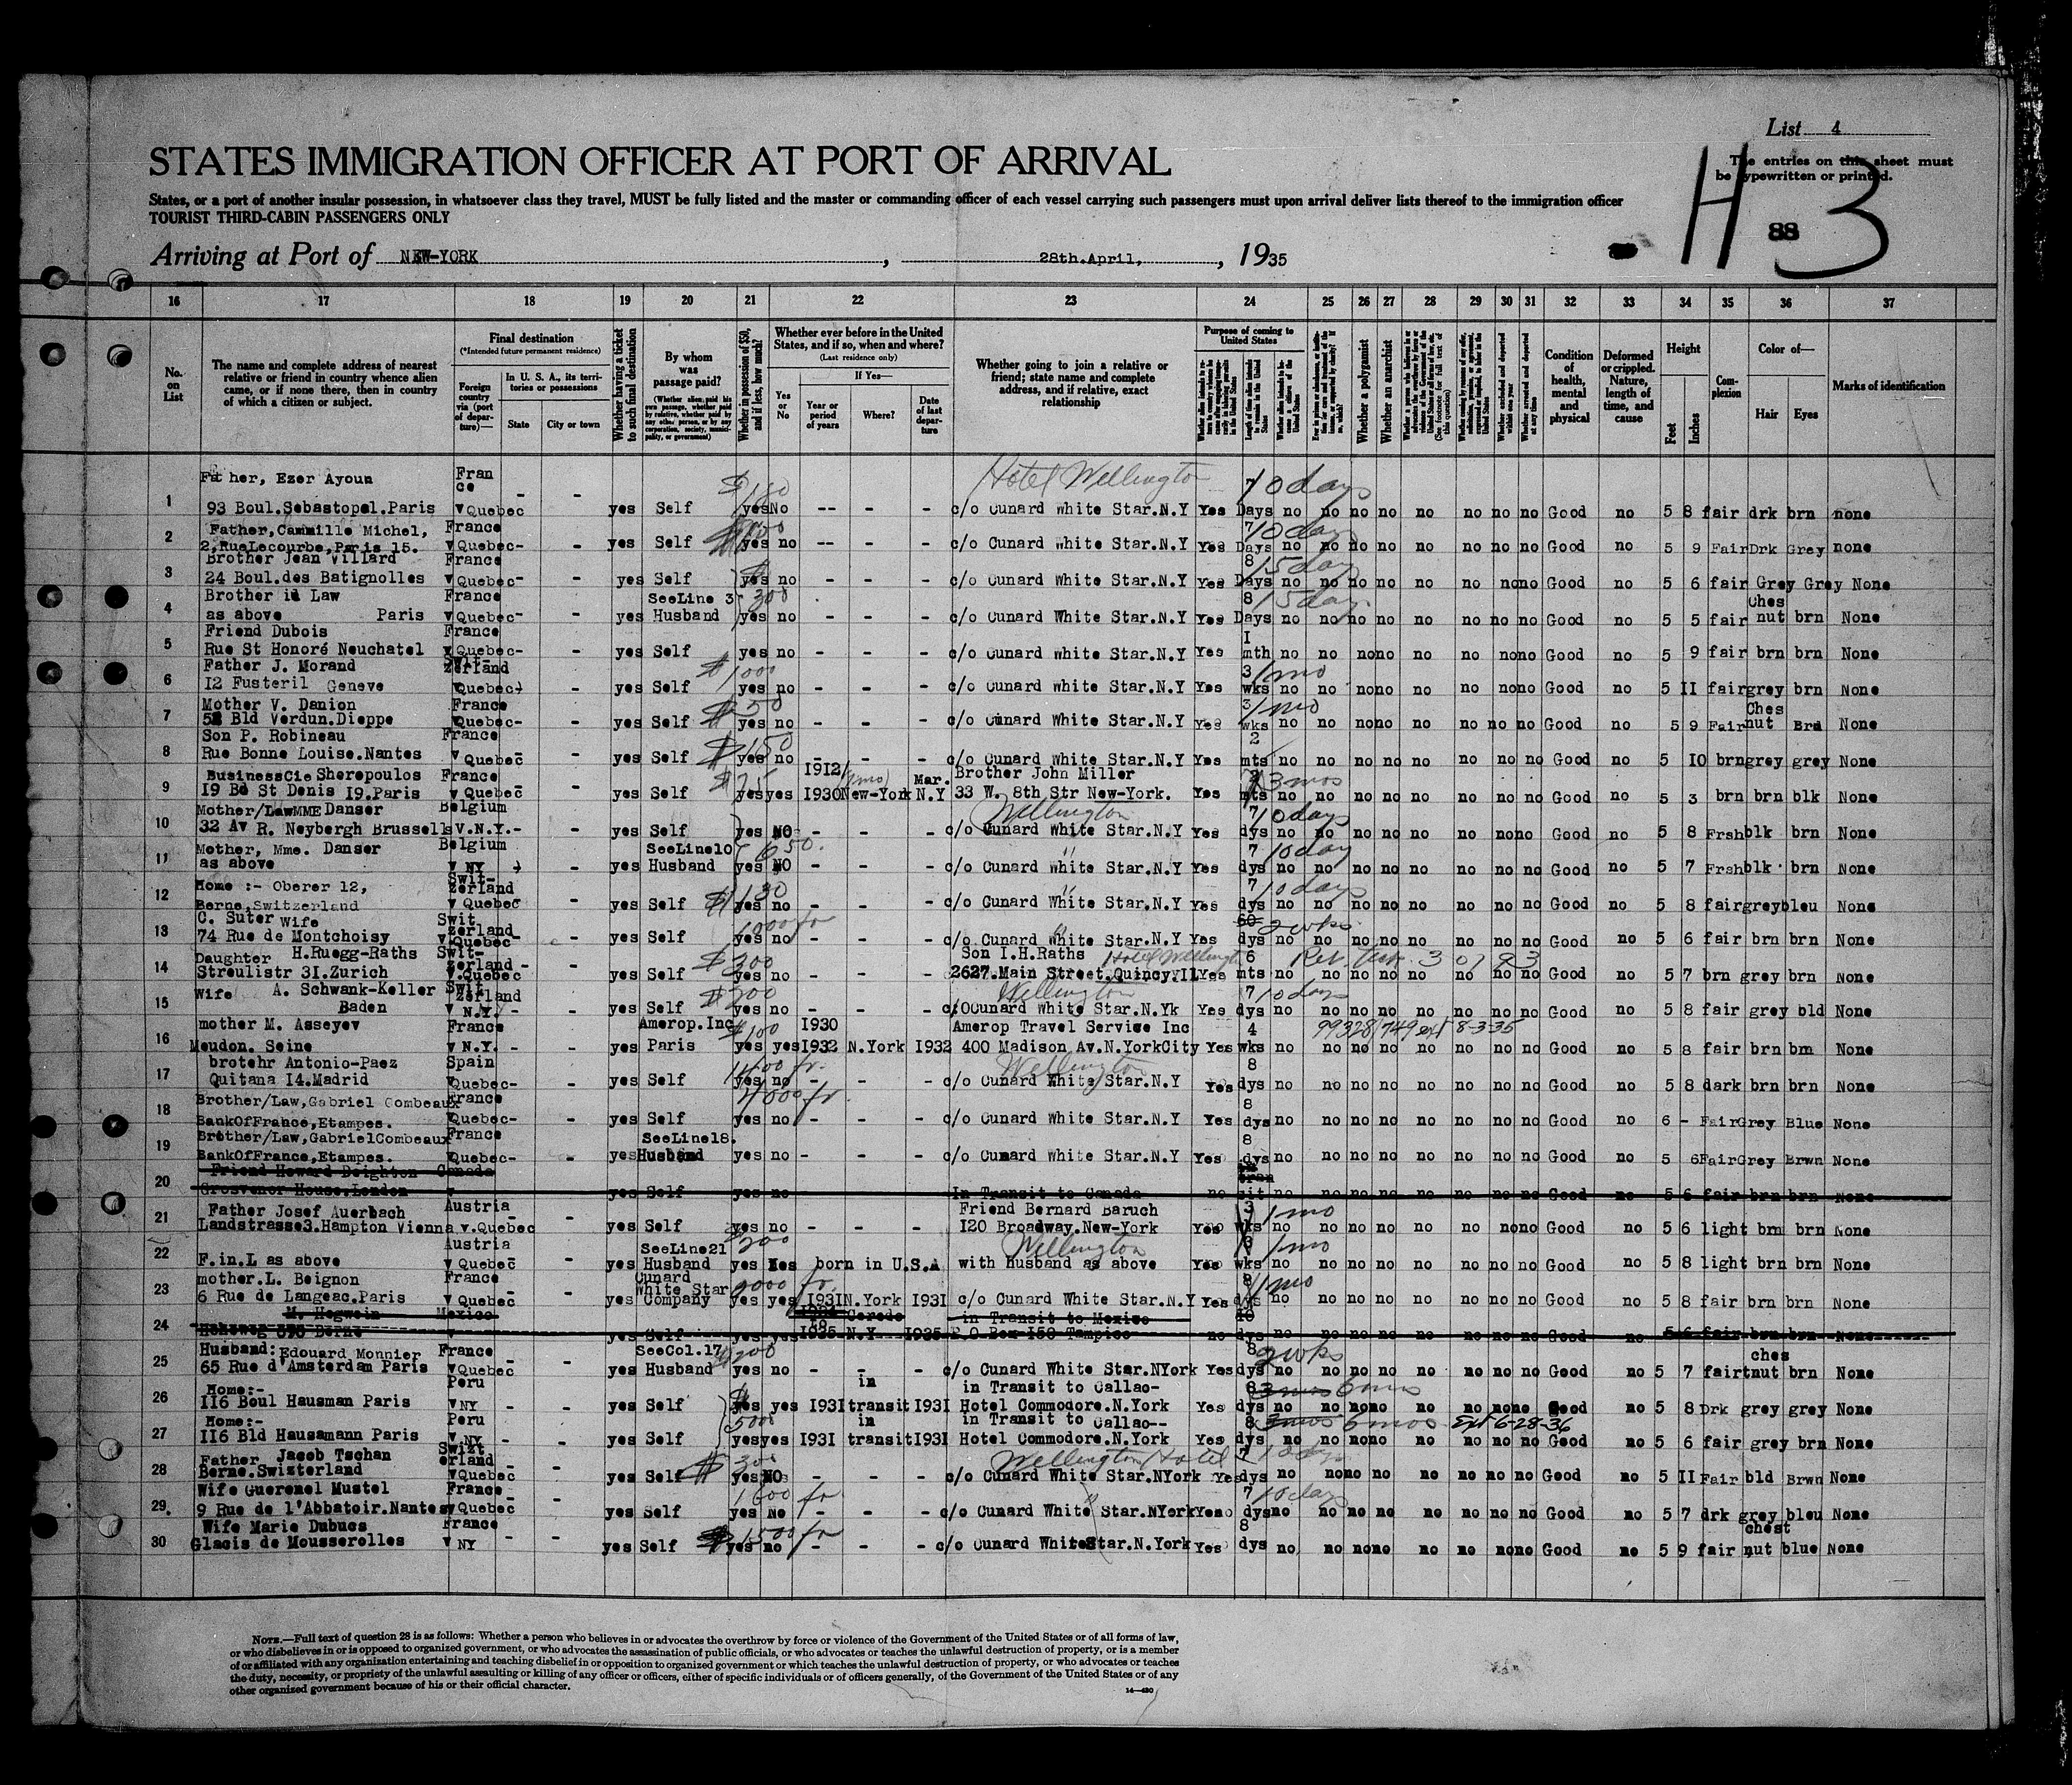 List 4
STATES IMMIGRATION OFFICER AT PORT OF ARRIVAL
The entries on this sheet must
be typewritten or printed.
H 3
88
States, or a port of another insular possession, in whatsoever class they travel, MUST be fully listed and the master or commanding officer of each vessel carrying such passengers must upon arrival deliver lists thereof to the immigration officer
TOURIST THIRD-CABIN PASSENGERS ONLY
Arriving at Port of NEW-YORK, 28th.April, 1935
16 17 18 19 20 21 22 23 24 25 26 27 28 29 30 31 32 33 34 35 36 37
No. on List
The name and complete address of nearest relative or friend in country whence alien came, or if none there, then in country of which a citizen or subject.
Final destination
(*Intended future permanent residence)
Foreign country via (port of departure)—
In U. S. A., its territories or possessions
State
City or town
Whether having a ticket to such final destination
By whom was passage paid?
(Whether alien paid his own passage, whether paid by relative, whether paid by any other person, or by any corporation, society, municipality, or government)
Whether in possession of $50, and if less, how much?
Whether ever before in the United States, and if so, when and where?
(Last residence only)
Yes or No
If Yes—
Year or period of years
Where?
Date of last departure
Whether going to join a relative or friend; state name and complete address, and if relative, exact relationship
Purpose of coming to United States
Whether a polygamist
Whether an anarchist
Condition of health, mental and physical
Deformed or crippled. Nature, length of time, and cause
Height
Feet
Inches
Complexion
Color of—
Hair
Eyes
Marks of identification
Father, Ezer Ayoun France $180 Hotel Wellington 7 10 days
1 93 Boul.Sebastopol.Paris v Quebec - - yes Self yes No -- - - c/o Cunard White Star.N.Y Yes Days no no no no no no no no Good no 5 8 fair drk brn none
Father,Cammille Michel, France 7 10 days
2 2,RueLecourbe,Paris 15. v Quebec- - yes Self yes no -- - - c/o Cunard White Star.N.Y Yes Days no no no no no no no no Good no 5 9 Fair Drk Grey none
Brother Jean Villard France 8 15 days
3 24 Boul.des Batignolles v Quebec- - yes Self yes no - - - c/o Cunard White Star.N.Y Yes Days no no no no no no no no Good no 5 6 fair Grey Grey None
Brother in Law France SeeLine 3 300 8 15 days Ches
4 as above Paris v Quebec- - yes Husband yes no - - - c/o Cunard White Star.N.Y Yes Days no no no no no no no no Good no 5 5 fair nut brn None
Friend Dubois France I
5 Rue St Honoré Neuchatel v Quebec- - yes Self yes no - - - c/o Cunard White Star.N.Y Yes mth no no no no no no no no Good no 5 9 fair brn brn None
Father J. Morand Swit-zerland $1000 3 1 mo
6 I2 Fusteril Geneve v Quebec - yes Self yes no - - - c/o Cunard White Star.N.Y Yes wks no no no no no no no no Good no 5 II fair grey brn None
Mother V. Danion France $250 3 1 mo Ches
7 52 Bld Verdun.Dieppe v Quebec- - yes Self yes no - - - c/o Cunard White Star.N.Y Yes wks no no no no no no no no Good no 5 9 Fair nut Brd None
Son P. Robineau France $150 2
8 Rue Bonne Louise.Nantes v Quebec - yes Self yes no - - - c/o Cunard White Star.N.Y Yes mts no no no no no no no no Good no 5 IO brn grey grey None
BusinessCie Sheropoulos France $75 I9I2/ Mar. Brother John Miller 3 mos
9 I9 Bd St Denis I9.Paris v Quebec - yes Self yes yes I930 New-York N.Y 33 W. 8th Str New-York. Yes mts no no no no no no no no Good no 5 3 brn brn blk None
Mother/LawMME Danser Belgium Wellington 7 10 days
10 32 Av R. Neybergh Brussells V.N.Y.- - yes Self yes NO - - - c/o Cunard White Star.N.Y Yes dys no no no no no no no no Good no 5 8 Frsh blk brn None
Mother, Mme. Danser Belgium SeeLine10 650. " 7 10 day
11 as above v NY - yes Husband yes NO - - - c/o Cunard White Star.N.Y Yes dys no no no no no no no no Good no 5 7 Frsh blk brn None
Home :- Oberer 12, Swit-zerland $130 " 7 10 days
12 Berne,Switzerland v Quebec - yes Self yes no - - - c/o Cunard White Star.N.Y Yes dys no no no no no no no no Good no 5 8 fair grey bleu None
C. Suter Wife Swit zerland 1000 fr " 60 2 wks
13 74 Rue de Montchoisy v Quebec- - yes Self yes no - - - c/o Cunard White Star.N.Y Yes dys no no no no no no no no Good no 5 6 fair brn brn None
Daughter H.Ruegg-Raths Swit-zerland- $300 Son I.H.Raths Hotel Wellington 6
14 Streulistr 3I.Zurich v.Quebec - yes Self yes no - - - 2627.Main Street.Quincy.IL Yes mts no no no no no no no no Good no 5 7 brn grey brn None
Wife A. Schwank-Keller Swit zerland $200 Wellington 7 10 days
15 Baden v N.Y. - - yes Self yes no - - - c/OCunard White Star.N.Yk Yes dys no no no no no no no no Good no 5 8 fair grey bld None
mother M. Asseyev France Amerop.Inc $100 I930 Amerop Travel Service Inc 4 99328/749 ext 8-3-35
16 Meudon. Seine v N.Y. - - yes Paris yes yes I932 N.York I932 400 Madison Av.N.YorkCity Yes wks no no no no no no no no Good no 5 8 fair brn brn None
brotehr Antonio-Paez Spain 1400 fr. Wellington 8
17 Quitana I4.Madrid v Quebec- - yes Self yes no - - - c/o Cunard White Star.N.Y Yes dys no no no no no no no no Good no 5 8 dark brn brn None
Brother/Law,Gabriel Combeaux France 4000 fr. 8
18 BankOfFrance,Etampes. v Quebec- - yes Self yes no - - - c/o Cunard White Star.N.Y Yes dys no no no no no no no no Good no 6 - Fair Grey Blue None
Brother/Law,GabrielCombeaux France SeeLine18. 8
19 BankOfFrance,Etampes. v Quebec- - yes Husband yes no - - - c/o Cunard White Star.N.Y Yes dys no no no no no no no no Good no 5 6 Fair Grey Brwn None
Friend Howard Deighton Canada
20 Grosvenor House.London v yes Self yes no In Transit to Canada no sit no no no no no no no no Good no 5 6 fair brn brn None
Father Josef Auerbach Austria Friend Bernard Baruch 3 1 mo
21 Landstrasse3.Hampton Vienna v.Quebec - yes Self yes no - - - I20 Broadway.New-York Yes wks no no no no no no no no Good no 5 6 light brn brn None
Austria SeeLine21 $200 Wellington 3 1 mo
22 F.in.L as above v Quebec - yes Husband yes Yes born in U.S.A with husband as above Yes wks no no no no no no no no Good no 5 8 light brn brn None
mother.L. Beignon France Cunard White Star 2000 fr. 8 1 mo
23 6 Rue de Langeac.Paris v Quebec - yes Company yes yes I93I N.York I93I c/o Cunard White Star.N.Y Yes dys no no no no no no no no Good no 5 8 fair brn brn None
M. Hegwein Mexico in Transit to Mexico
24 Berne v yes Self yes yes I935 N.Y I935 P.O Box I50 Tampico no dys no no no no no no no no Good no 5 6 fair brn brn None
Husband: Edouard Monnier France SeeCol.17 $200 8 2 wks ches
25 65 Rue d'Amsterdam Paris v Quebec - - yes Husband yes no - - - c/o Cunard White Star.NYork Yes dys no no no no no no no no Good no 5 7 fair tnut brn None
Home:- Peru in in Transit to Callao- 8 3 mos 6 mos
26 II6 Boul Hausman Paris v NY - - yes Self yes yes I93I transit I93I Hotel Commodore.N.York Yes dys no no no no no no no no Good no 5 8 Drk grey grey None
Home:- Peru 5000 in in Transit to Callao-- 8 3 mos 6 mos Ext 6-28-36
27 II6 Bld Hausamann Paris v NY - - yes Self yes yes I93I transit I93I Hotel Commodore.N.York Yes dys no no no no no no no no Good no 5 6 fair grey brn None
Father Jacob Tschan Swizt erland $300 Wellington Hotel 7 10 days
28 Berne.Swizterland v Quebec - yes Self yes NO - - - c/o Cunard White Star.NYork Yes dys no no no no no no no no Good no 5 II Fair bld Brwn None
Wife Guerenel Mustel France 1600 fr " 7 10 days
29. 9 Rue de l'Abbatoir.Nantes v Quebec - yes Self yes No - - - c/o Cunard White Star.NYork Yes dys no no no no no no no no Good no 5 7 drk grey bleu None
Wife Marie Dubucs France 1500 fr 8 chest
30 Glacis de Mousserolles v NY - - yes Self yes no - - - c/o Cunard White Star.N.York Yes dys no no no no no no no no Good no 5 9 fair nut blue None
NOTE.—Full text of question 28 is as follows: Whether a person who believes in or advocates the overthrow by force or violence of the Government of the United States or of all forms of law,
or who disbelieves in or is opposed to organized government, or who advocates the assassination of public officials, or who advocates or teaches the unlawful destruction of property, or is a member
of or affiliated with any organization entertaining and teaching disbelief in or opposition to organized government or which teaches the unlawful destruction of property, or who advocates or teaches
the duty, necessity, or propriety of the unlawful assaulting or killing of any officer or officers, either of specific individuals or of officers generally, of the Government of the United States or of any
other organized government because of his or their official character.
14—420